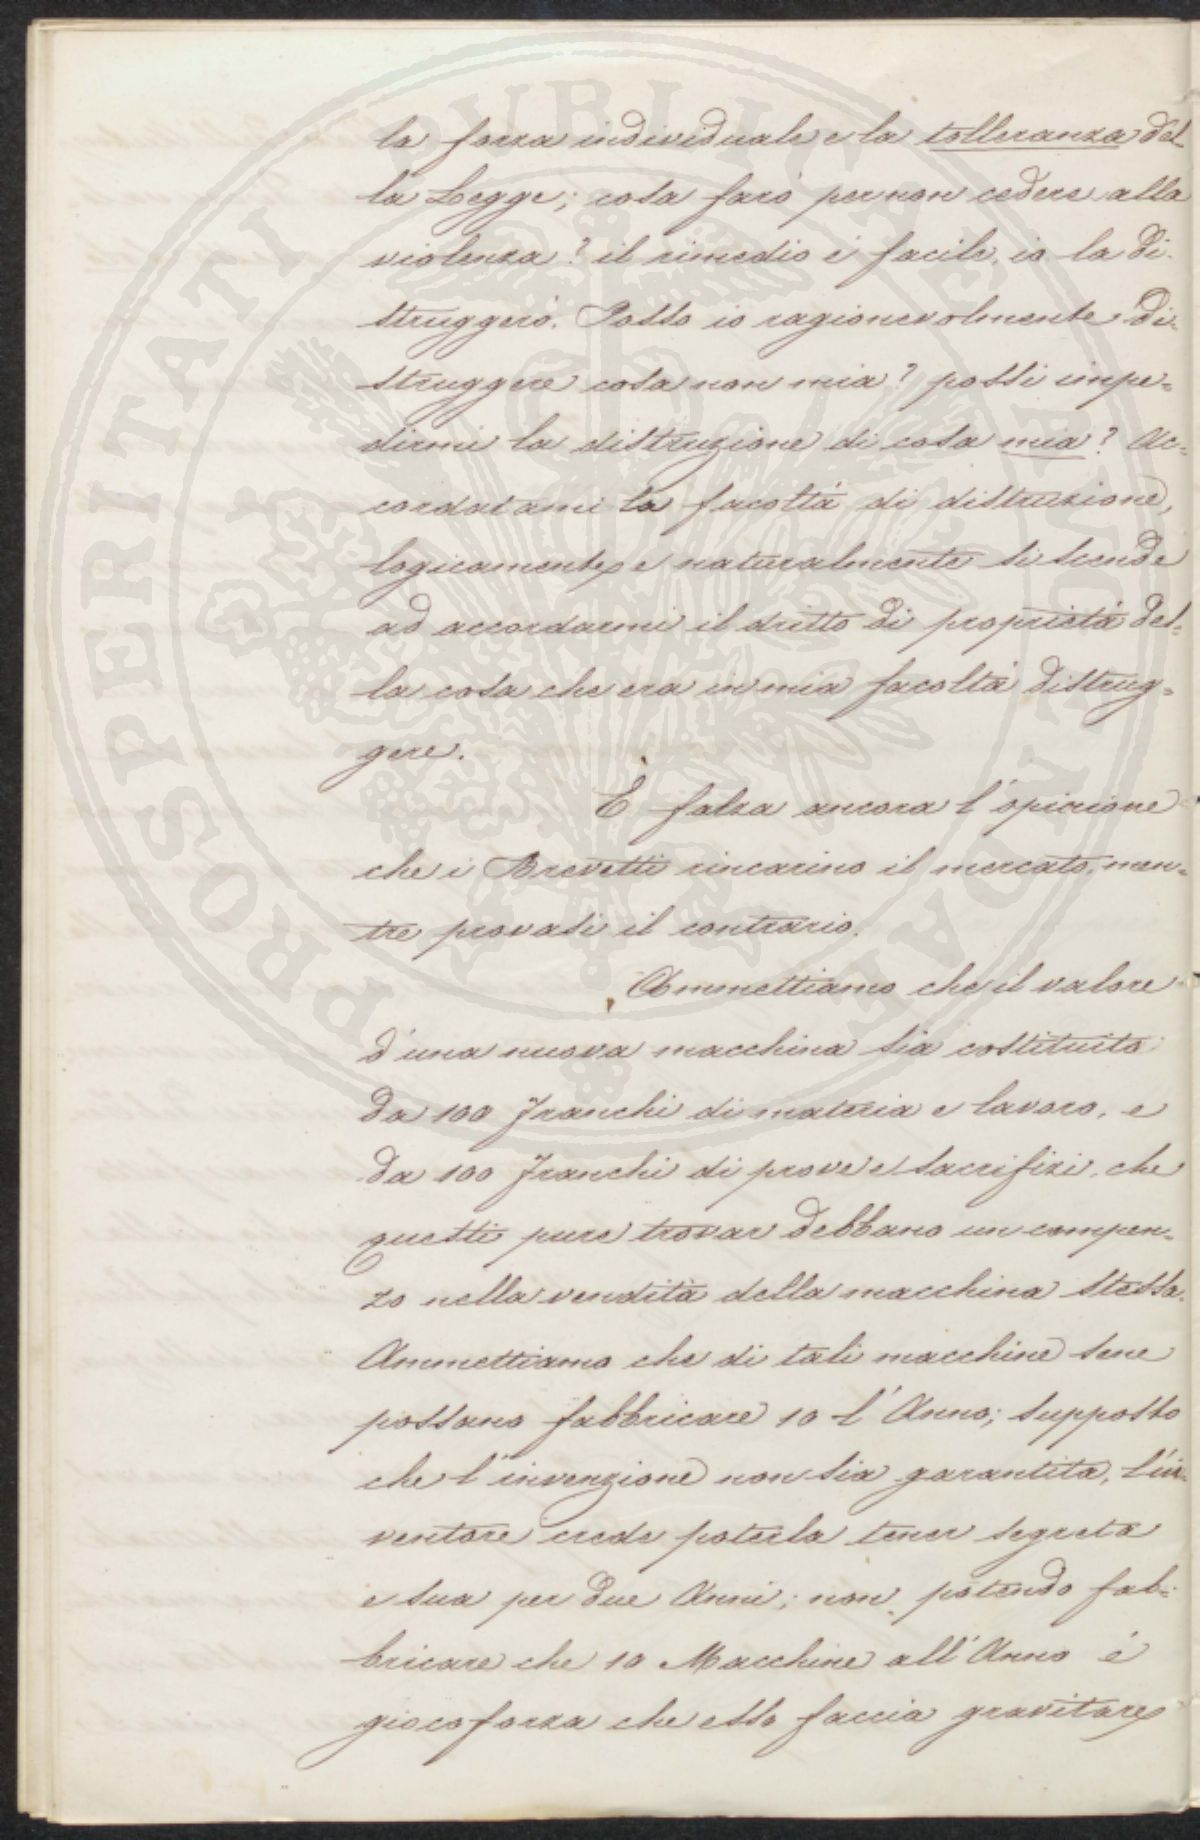 la forza individuale e la tolleranza del-
la Legge; cosa faró per non cedere alla
violenza? il rimedio é facile, io la di-
struggeró. Posso io ragionevolmente di-
struggere cosa non mia? possi impe-
dirmi la distruzione di cosa mia? Ac-
cordatami la facoltá di distruzione,
logicamente e naturalmente si scende
ad accordarmi il dritto di proprietá del-
la cosa che era in mia facoltá distrug-
gere.
É falza ancora l'opinione
che i Brevetti rincarino il mercato, men-
tre provasi il contrario.
Ammettiamo che il valore
d'una nuova macchina sia costituito
da 100 Franchi di materia e lavoro, e
da 100 Franchi di prove e sacrifizi, che
questi pure trovar debbano un compen-
zo nella vendita della macchina stessa.
Ammettiamo che di tali macchine sene
possano fabbricare 10 l'Anno; supposto
che l'invenzione non sia garantita, l'in-
ventore crede poterla tener segreta
e sua per due Anni; non potendo fab-
bricare che 10 Macchine all'Anno é
giocoforza che esso faccia gravitare
PROSPERITATI PUBLICAE AUGENDAE